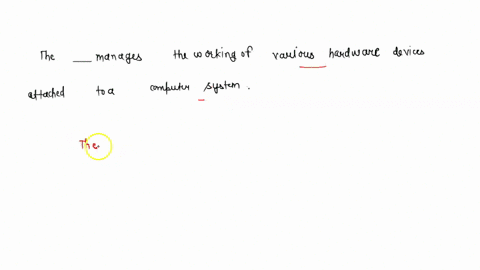 The ___ manages the working of various hardware devices
attached to a computer system.
The